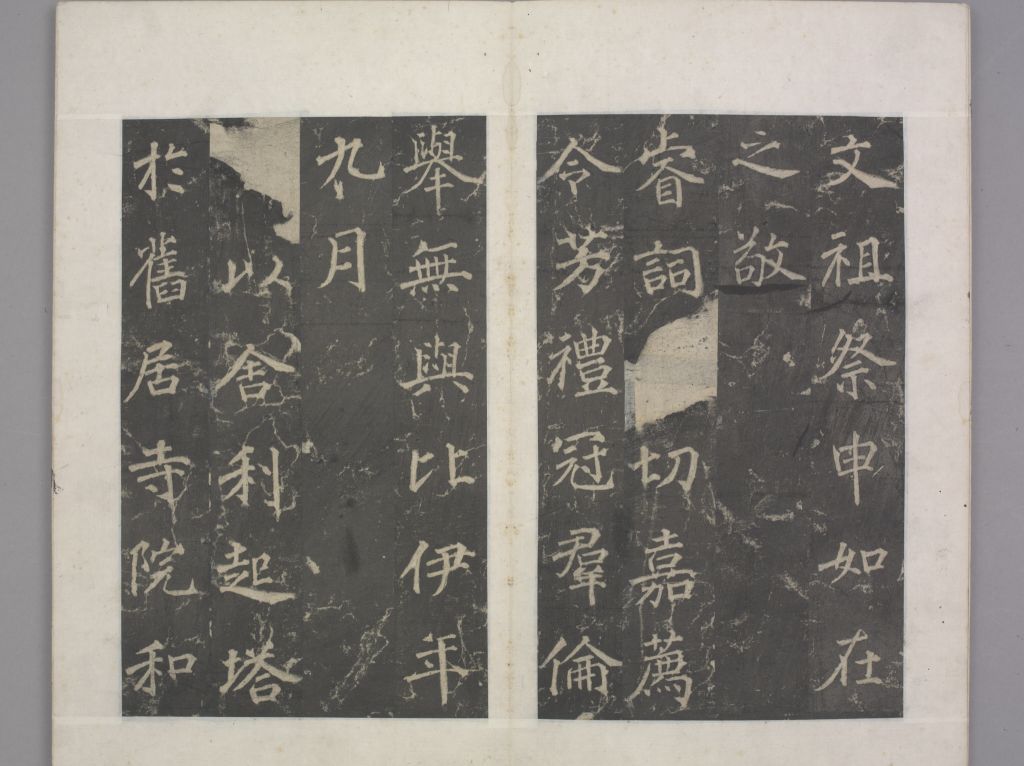 文祖祭申如在
之敬
睿詞切嘉薦
令芳禮冠羣倫
舉無與比伊年
九月
以舍利起塔
於舊居寺院和